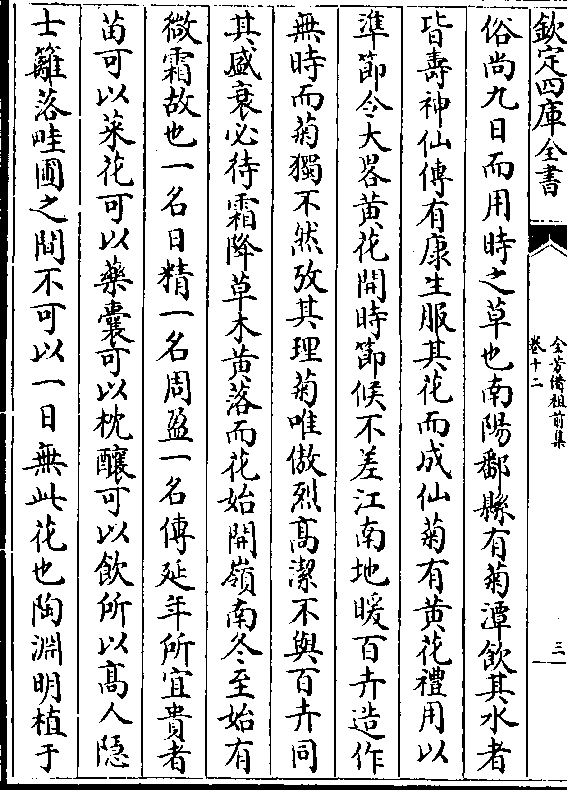 欽定四庫全書
全芳備祖前集
卷十二
三
俗尚九日而用時之草也南陽酈縣有菊潭飲其水者
皆壽神仙傳有康生服其花而成仙菊有黄花禮用以
準節令大畧黄花開時節候不差江南地暖百卉造作
無時而菊獨不然攷其理菊唯傲烈高潔不與百卉同
其盛衰必待霜降草木黄落而花始開嶺南冬至始有
微霜故也一名日精一名周盈一名傳延年所宜貴者
苗可以菜花可以藥囊可以枕釀可以飲所以高人隱
士籬落畦圃之間不可以一日無此花也陶淵明植于